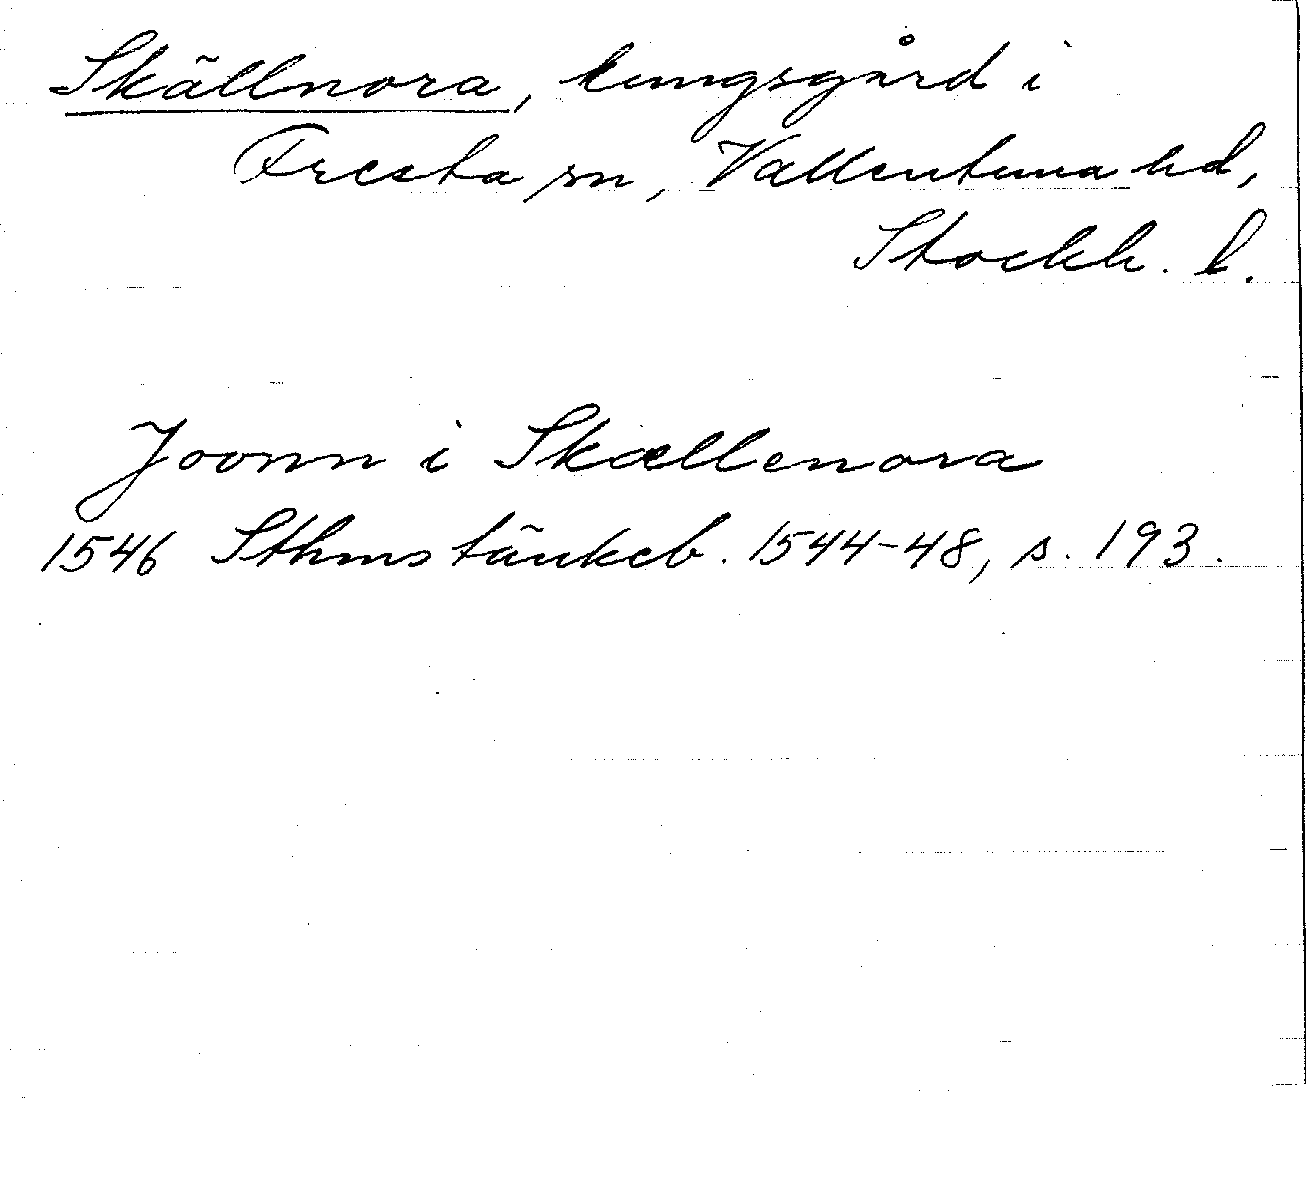 Skällnora, kungsgård i
Fresta sn, Vallentuna hd,
Stockh. l.
Joonn i Skællenora
1546 Sthms tänkeb. 1544-48, s. 193.